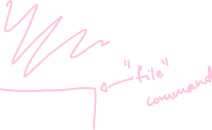 "file"
command